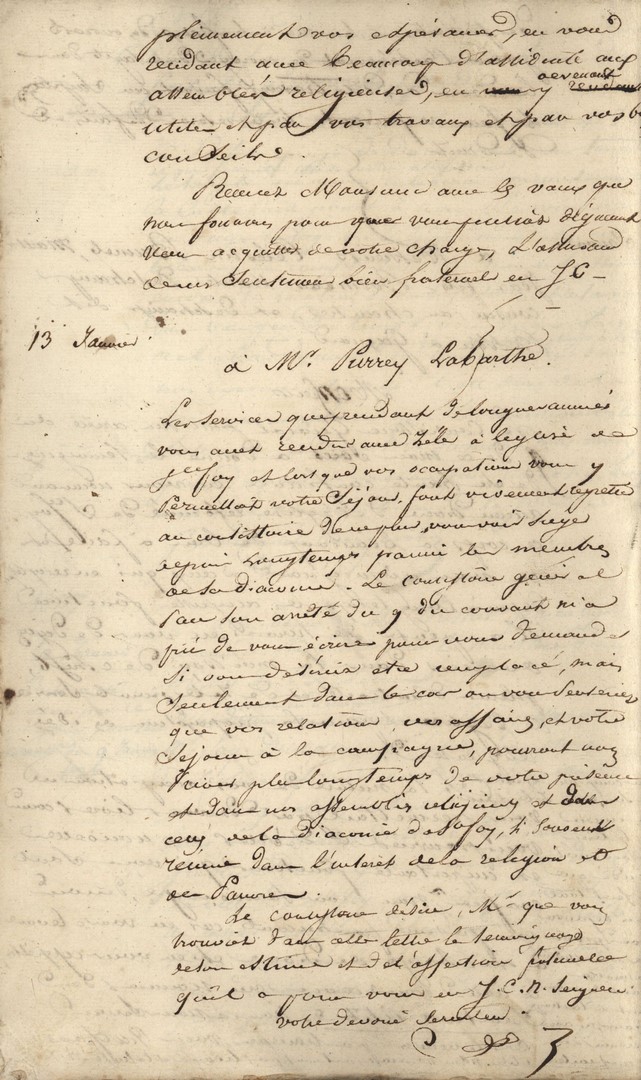 pleinement vos espérances, en vous
rendant avec beaucoup d'assiduité aux
assemblées religieuses, en y devenant
utile et par vos travaux et par vos
conseils.
Recevez Monsieur avec les vœux que
nous formons pour que vous puissiez dignement
vous acquitter de votre charge, l'assurance
de nos sentimens bien fraternels en J C -
13 Janvier
à Mr. Purrey Labarthe.
Les services que pendant de longues années
vous avez rendus avec zèle à l'église de
Ste foy et lorsque vos ocupations vous y
Permettait votre Séjour, font vivement regretter
au consistoire de ne plus vous voir siéger
depuis longtemps parmi les membres
de sa diaconie. Le consistoire général
par son arrêté du 9 du courant m'a
prié de vous écrire pour vous demander
si vous désiriez etre remplacé, mais
seulement dans le cas ou vous sentiriez
que vos relations, vos affaires, et votre
séjour à la campagne, pourront nous
priver plus longtemps de votre présence
et dans nos assemblées religieuses et dans
celles de la diaconie de Ste foy, si souvent
réunie dans l'interet de la religion et
des Pauvres.
Le consistoire désire, Mr que vous
trouviez dans cette lettre le temoignage
de son estime et de l'affection fraternelle
qu'il a pour vous en J. C. N. Seigneur
votre dévoué Serviteur